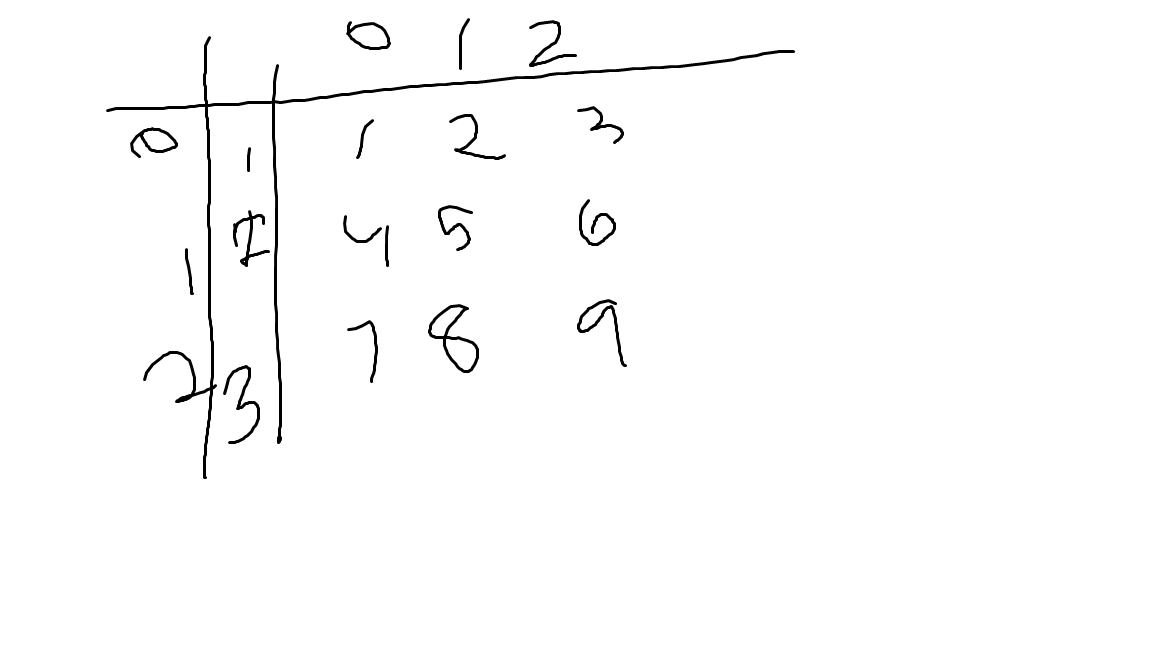 0 1 2
0 1 1 2 3
1 4 5 6
2 3 7 8 9